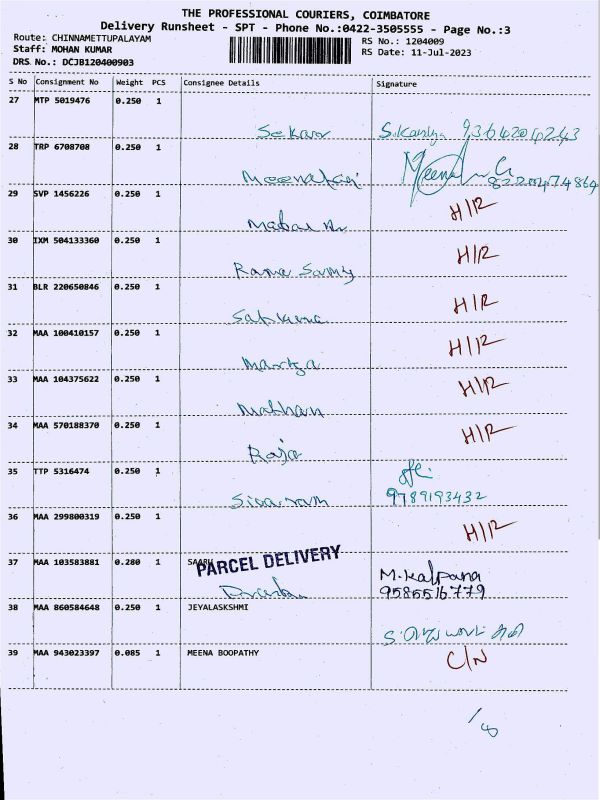 THE PROFESSIONAL COURIERS, COIMBATORE
Delivery Runsheet - SPT - Phone No.:0422-3505555 - Page No.:3
Route: CHINNAMETTUPALAYAM RS No.: 1204009
Staff: MOHAN KUMAR RS Date: 11-Jul-2023
DRS No.: DCJB120400903
S No Consignment No Weight PCS Consignee Details Signature
27 MTP 5019476 0.250 1
Sekar 9364204243
28 TRP 6708708 0.250 1
Meena
29 SVP 1456226 0.250 1 H/R
30 IXM 504133360 0.250 1 H/R
Rama Samy
31 BLR 220650846 0.250 1 H/R
32 MAA 100410157 0.250 1 H/R
33 MAA 104375622 0.250 1 H/R
34 MAA 570188370 0.250 1 H/R
Raja
35 TTP 5316474 0.250 1
Sivaram 9789193432
36 MAA 299800319 0.250 1 H/R
37 MAA 103583881 0.280 1 PARCEL DELIVERY M. Kalpana
9585516779
38 MAA 860584648 0.250 1 JEYALASKSHMI
39 MAA 943023397 0.085 1 MEENA BOOPATHY C/N